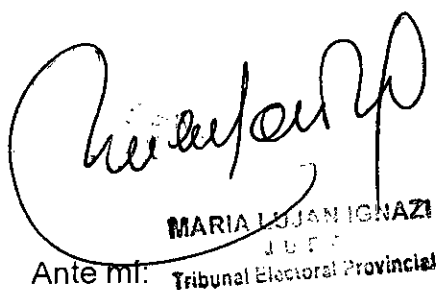 MARIA LUJAN IGNAZI
JUEZ
Ante mí: Tribunal Electoral Provincial